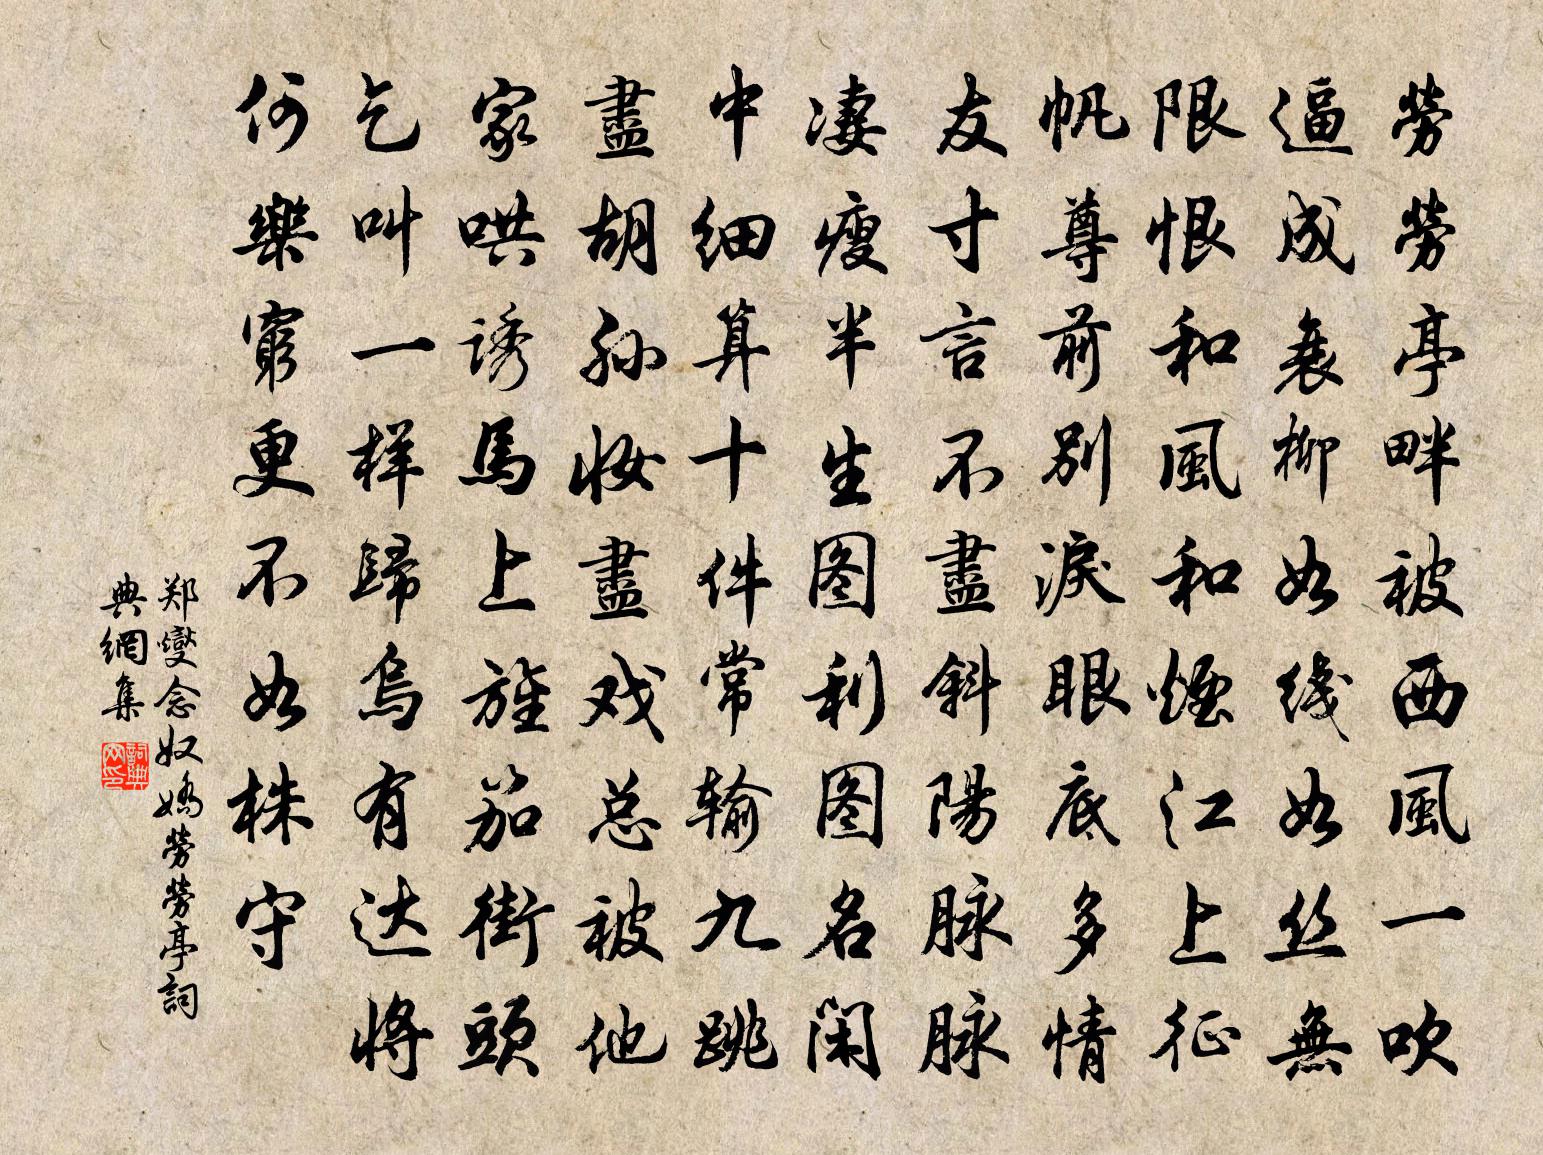 勞勞亭畔被西風一吹
逼成衰柳如綫如絲無
限恨和風和煙江上征
帆尊前別淚眼底多情
友寸言不盡斜陽脉脉
凄瘦半生图利图名闲
中细算十件常输九跳
盡胡孙妆盡戏总被他
家哄诱馬上旌笳街頭
乞叫一样歸烏有达将
何樂窮更不如株守
郑燮念奴嬌勞勞亭詞
典網集
詞典